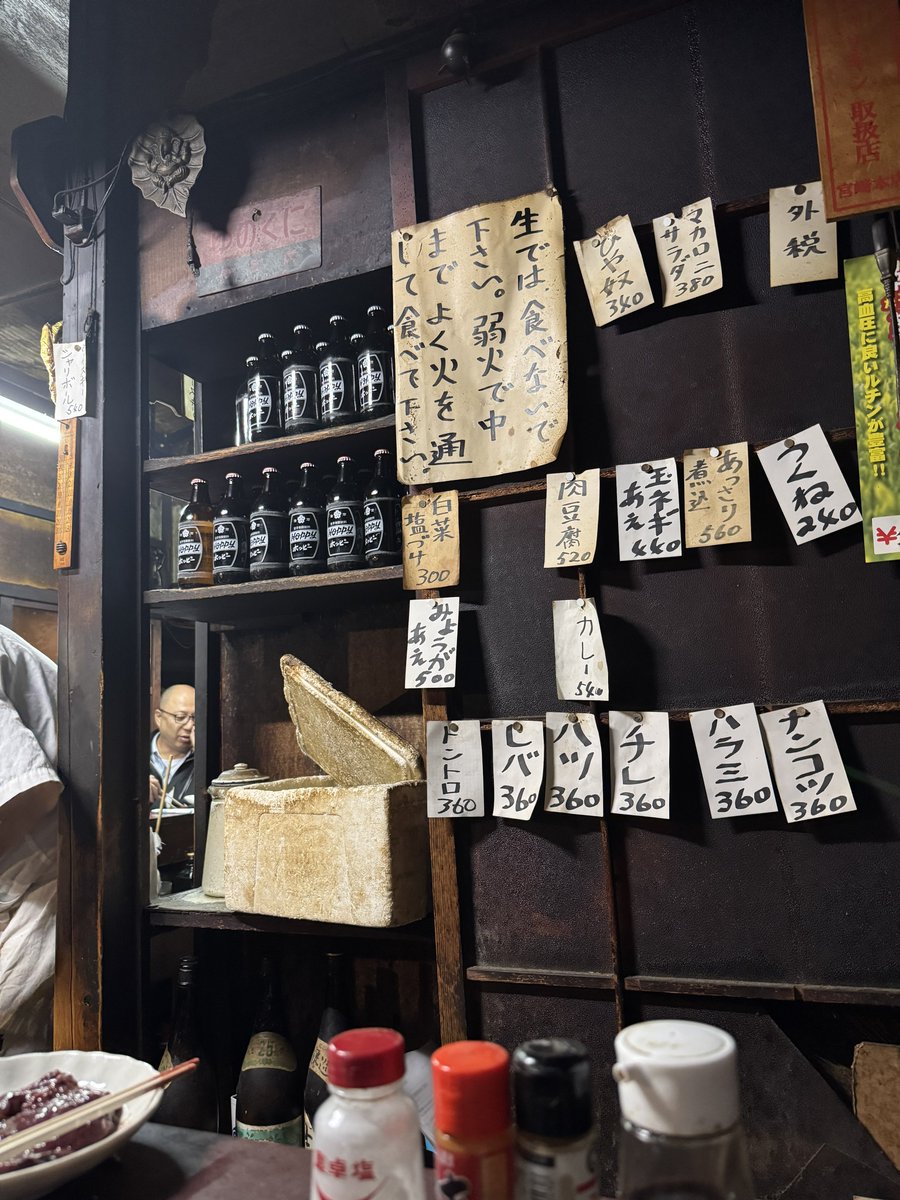 生では、食べないで
下さい。弱火で中
まで よく火を通
して食べて下さい。
ひや奴
340
マカロニ
サラダ
380
外税
取扱店
宮崎本店
高血圧に良いルチンが豊富!!
シャリボール
540
白菜
塩づけ
300
肉豆腐
520
玉ネギ
あえ
440
あっさり
煮込
560
つくね
240
みょうが
あえ
500
カレー
540
トントロ
360
レバ
360
ハツ
360
チレ
360
ハラミ
360
ナンコツ
360
Hoppy
ホッピー
Hoppy
ホッピー
Hoppy
ホッピー
Hoppy
ホッピー
Hoppy
ホッピー
Hoppy
ホッピー
25%
食卓塩